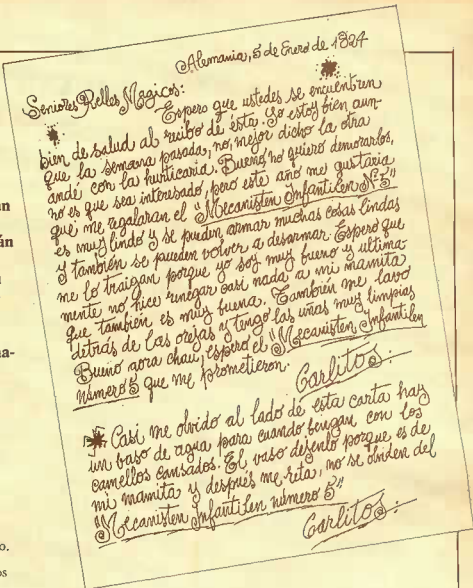 Alemania, 5 de Enero de 1824
Seniores Relles Magicos:
Espero que ustedes se encuentren
bien de salud al recibo de ésta. Yo estoy bien aun-
que la semana pasada, no, mejor dicho la otra
andé con la hurticaria. Bueno, no quiero demorarlos,
no es que sea interesado, pero este año me gustaria
que me regalaran el "Mecanisten Infantilen Nº 5"
es muy lindo y se pueden armar muchas cosas lindas
y también se pueden volver a desarmar. Espero que
me lo traigan porque yo soy muy bueno y ultima
mente no hice renegar casi nada a mi mamita
que también es muy buena. También me lavo
detrás de las orejas y tengo las uñas muy limpias
Bueno aora chau, espero el "Mecanisten Infantilen
número 5" que me prometieron.
Carlitos:
Casi me olvido al lado de esta carta hay
un baso de agua para cuando bengan con los
camellos cansados. El vaso desenlo porque es de
mi mamita y después me reta, no se olviden del
"Mecanisten Infantilen número 5"
Carlitos:
an
án
a-
o.
os